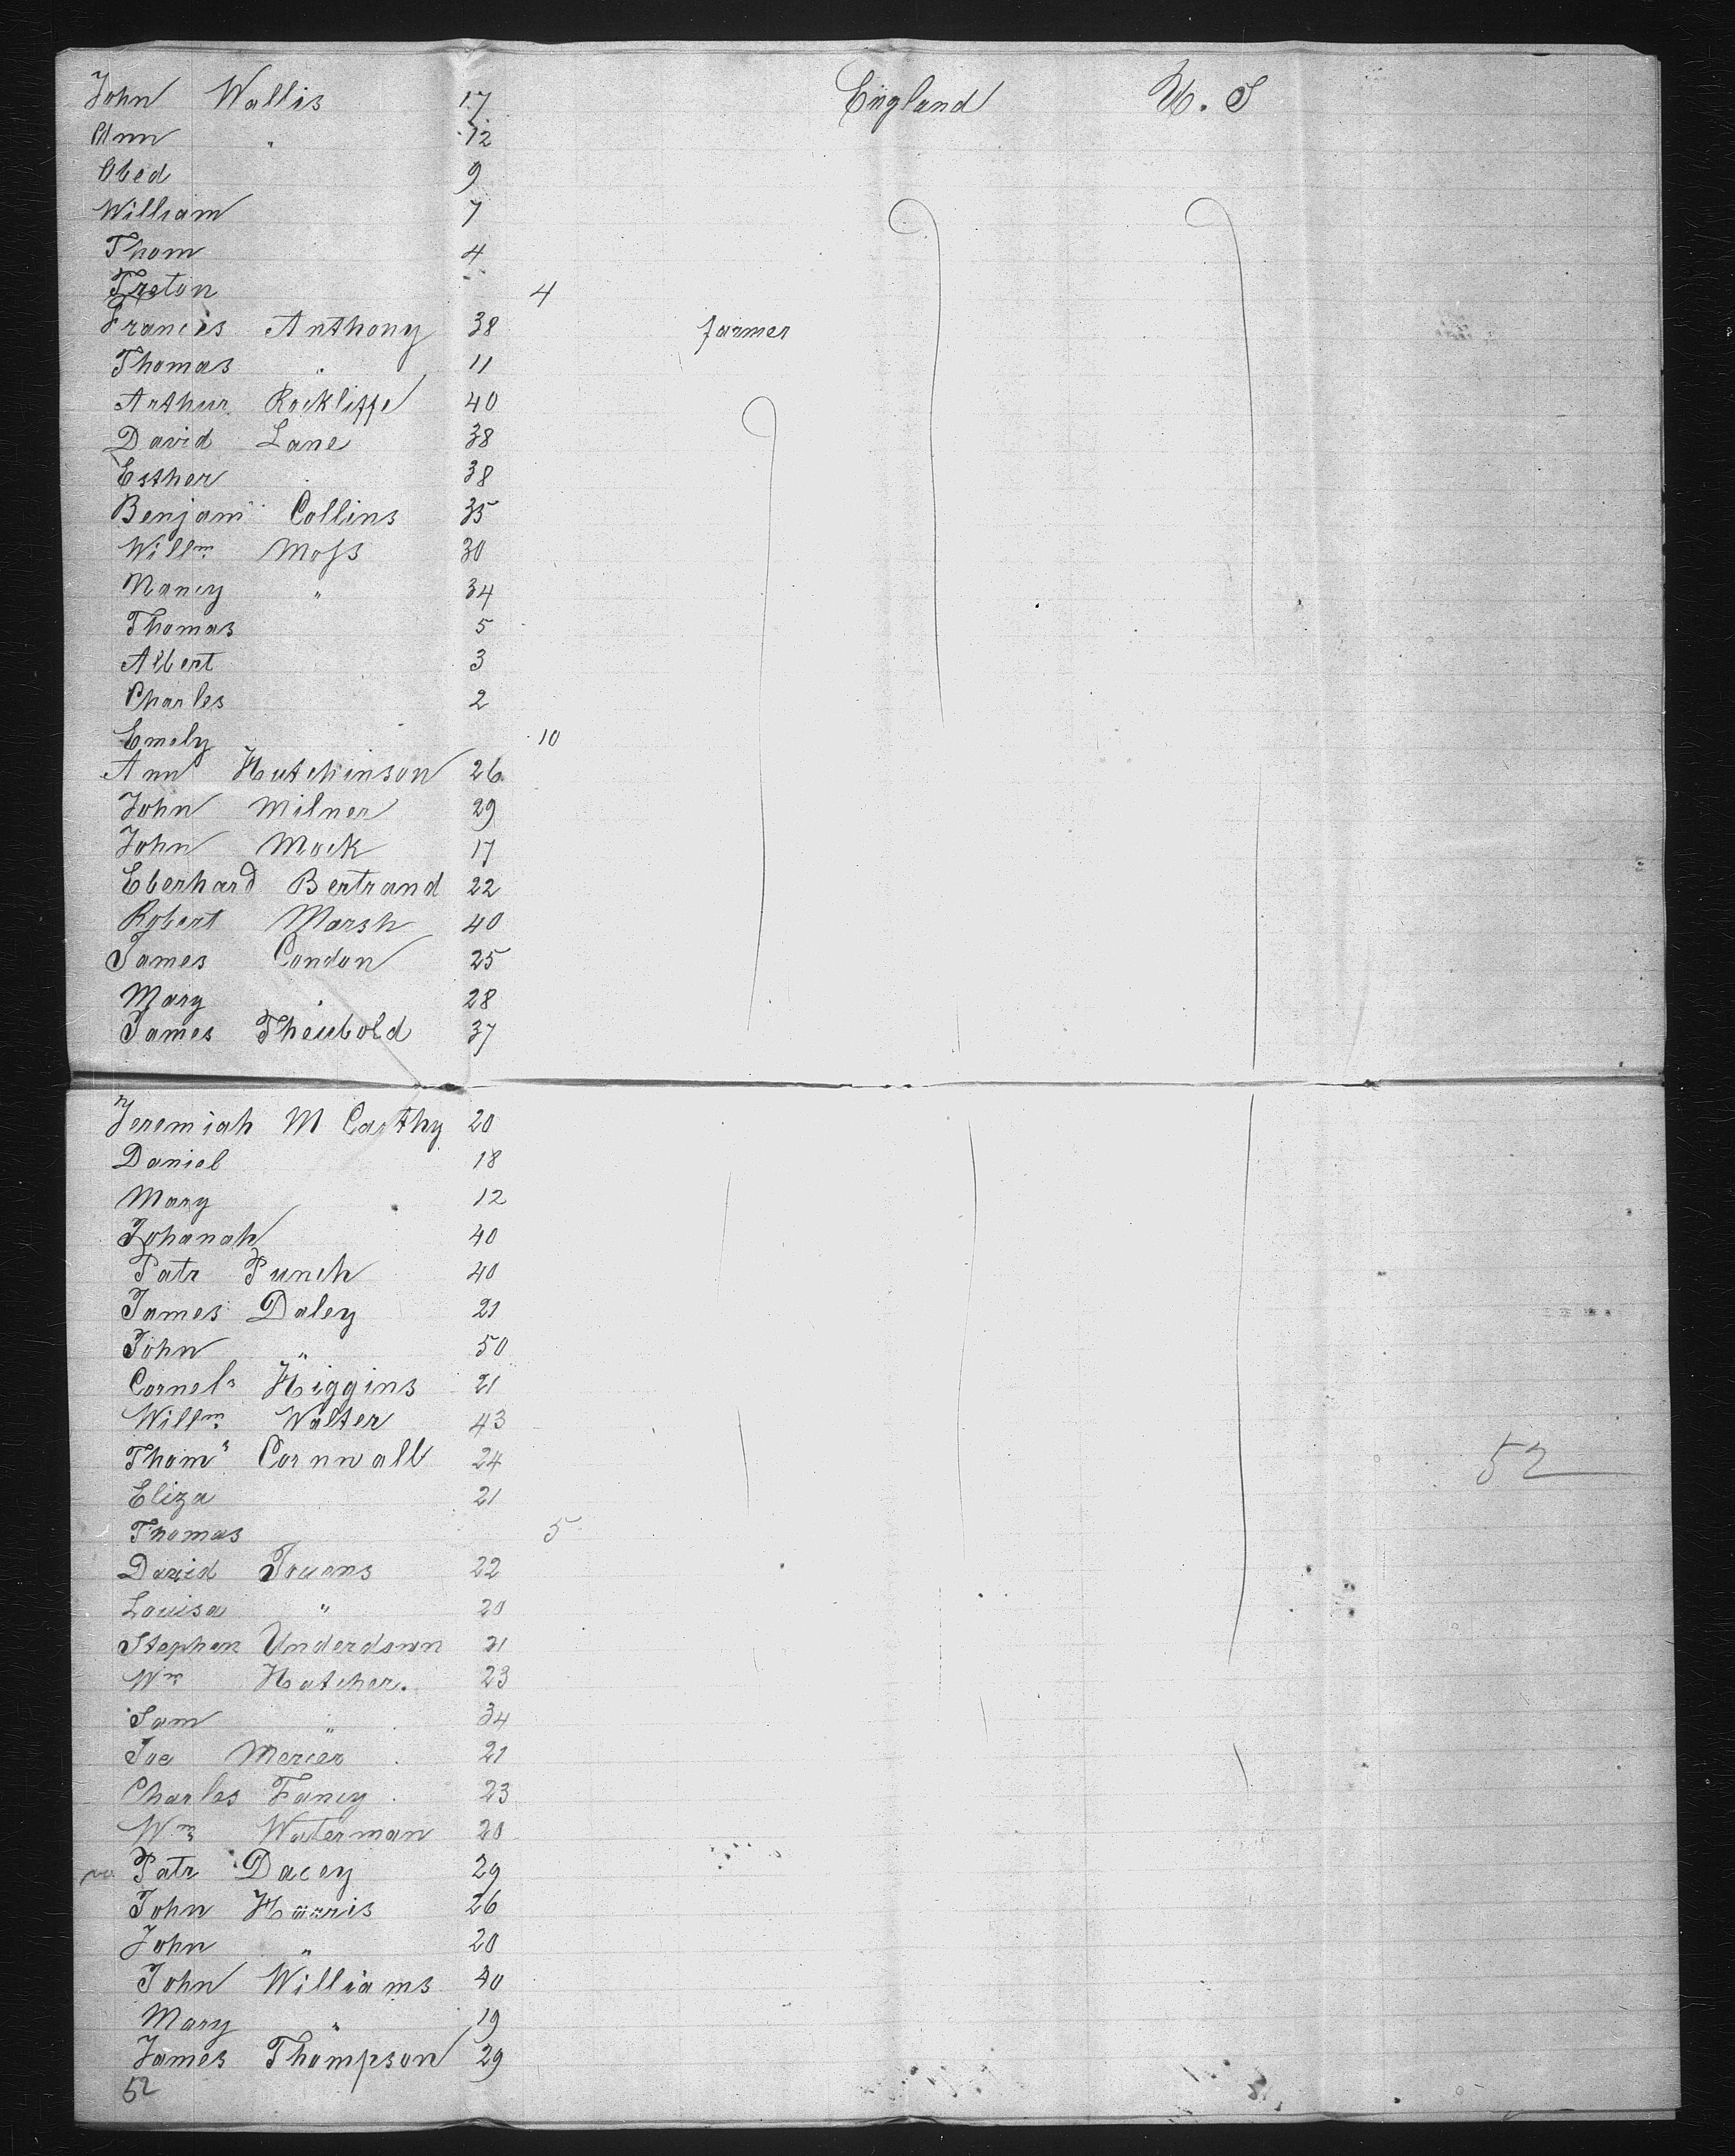 John Wallis 17 England U. S
Ann " 12
Obed 9
William 7
Thom 4
Freton 4
Frances Anthony 38 farmer
Thomas " 11
Arthur Rockliffe 40
David Lane 38
Esther 38
Benjam Collins 35
Willm Moss 30
Nancy " 34
Thomas 5
Albert 3
Charles 2
Emely 10
Ann Hutchinson 26
John Milner 29
John Mock 17
Eberhard Bertrand 22
Robert Marsh 40
James Condon 25
Mary " 28
James Theubold 37
Jeremiah M Carthy 20
Daniel 18
Mary 12
Johanah 40
Patr Punch 40
James Daley 21
John " 50
Cornels Higgins 21
Willm Walter 43
Thoms Cornwall 24
Eliza 21
Thomas 5
David Touens 22
Louisa " 20
Stephen Underdown 21
Wm Hatcher. 23
Sam " 34
Joe Mercer 21
Charles Fancy 23
Wm Waterman 20
Patr Dacey 29
John Harris 26
John " 20
John Williams 40
Mary " 19
James Thompson 29
52
52